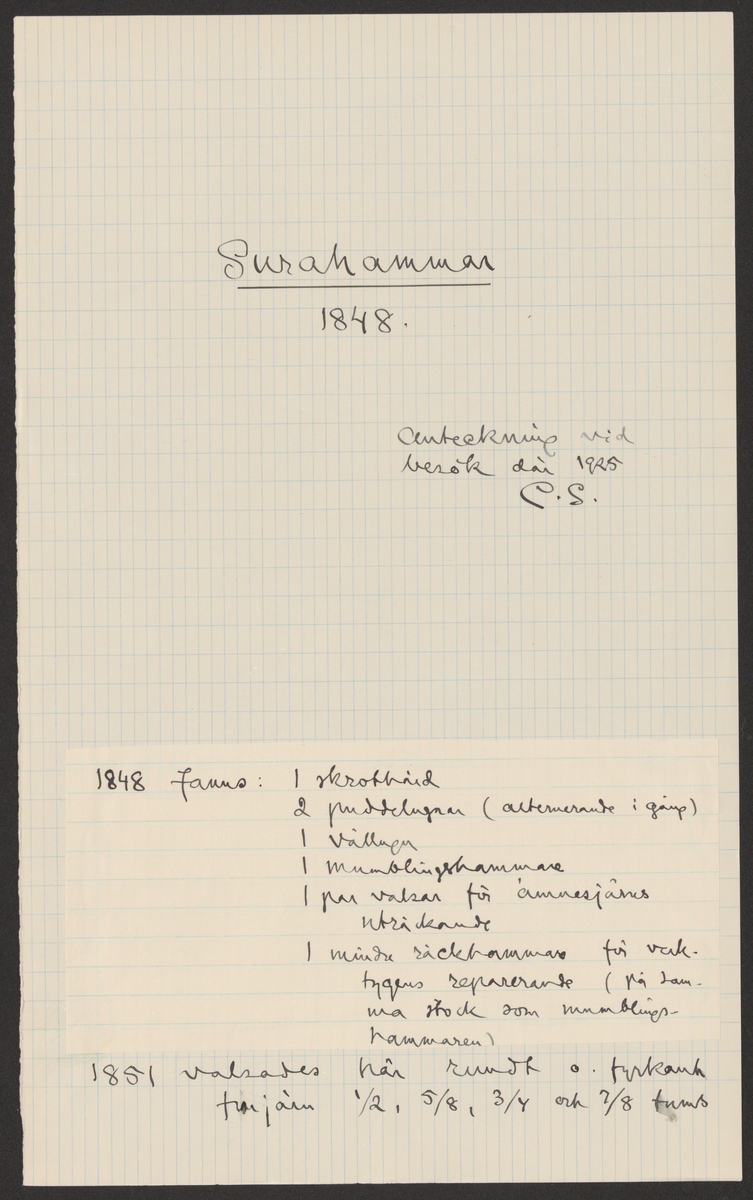 Surahammar
1848.
Anteckning vid
besök där 1925
C.S.
1848 fanns: 1 skrothärd
2 puddelugnar (alternerande i gång)
1 vällugn
1 mumblingshammare
1 par valsar för ämnesjärns
uträckande
1 mindre räckhammare för verk-
tygens reparerande (på sam-
ma stock som mumblings-
hammaren)
1851 valsades här rundt o. fyrkant
finjärn 1/2, 5/8, 3/4 och 7/8 tums